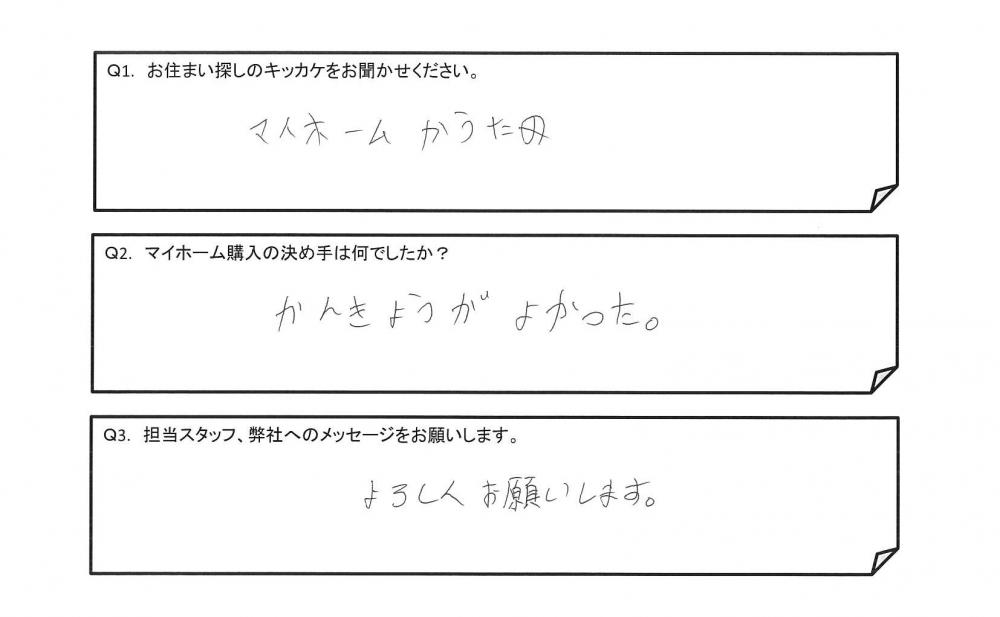 Q1. お住まい探しのキッカケをお聞かせください。
マイホーム かうため
Q2. マイホーム購入の決め手は何でしたか？
かんきょうが よかった。
Q3. 担当スタッフ、弊社へのメッセージをお願いします。
よろしく お願いします。